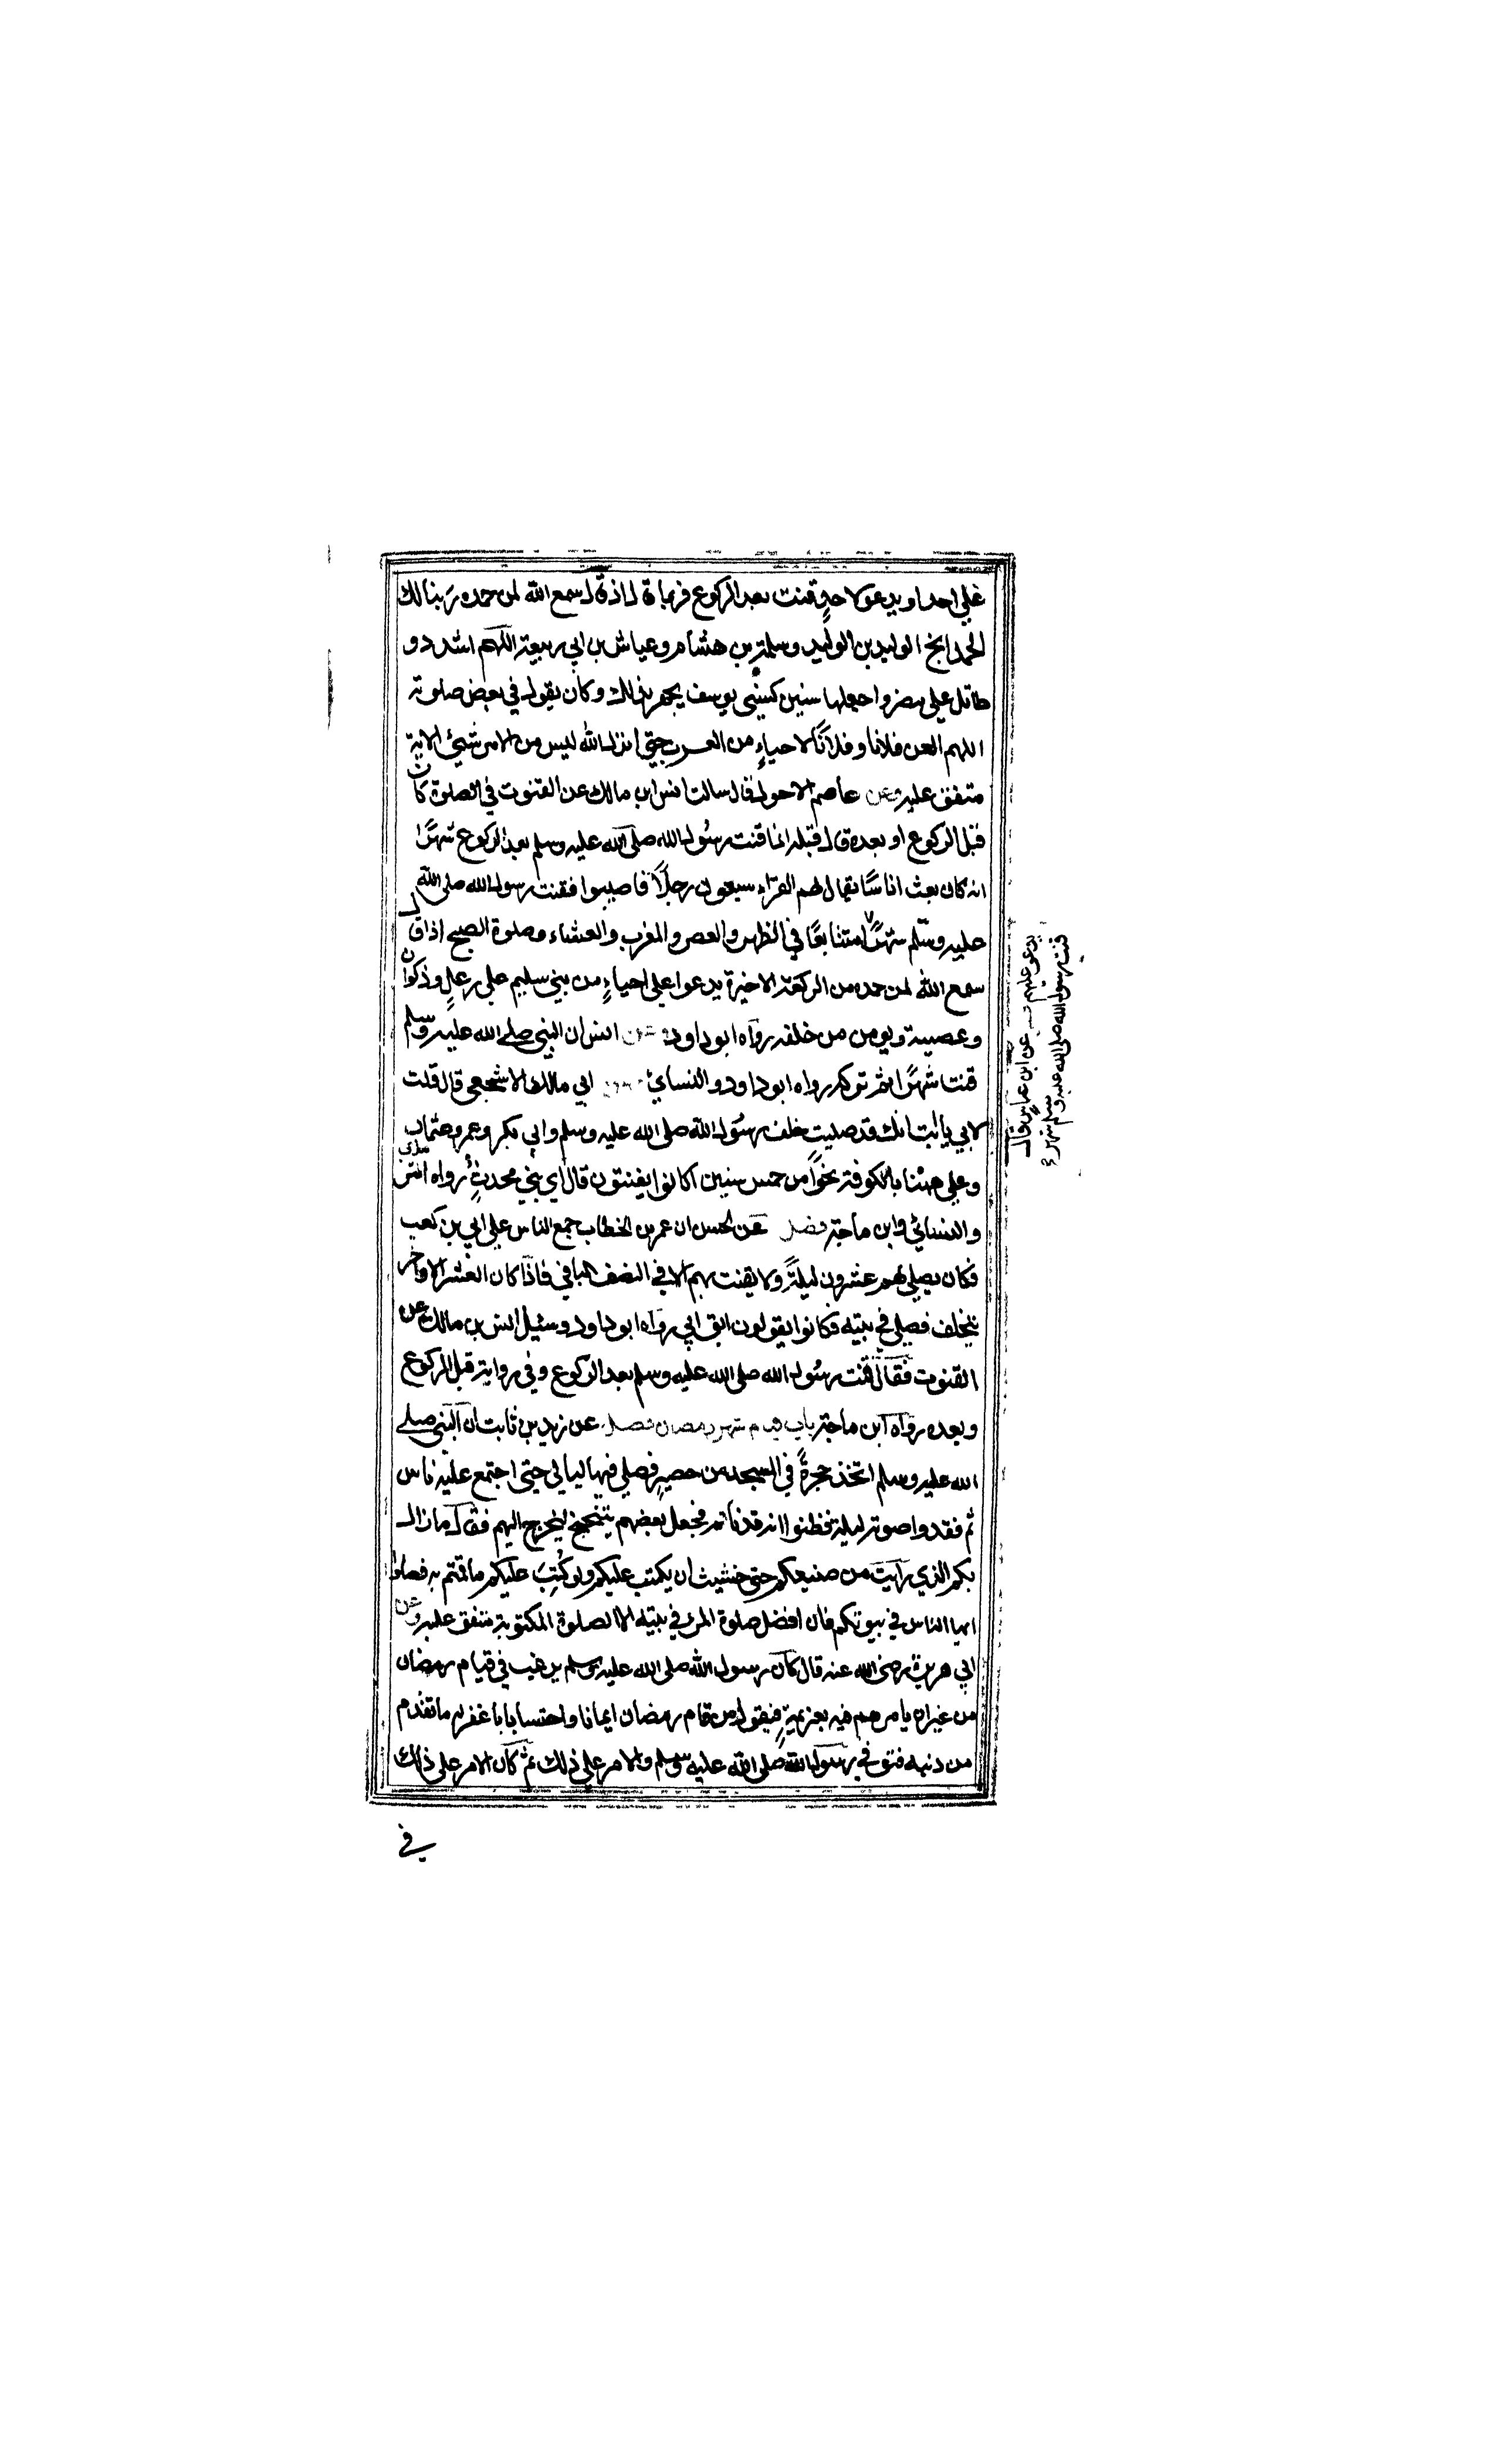 علي احد او يدعو لاحد قنت بعد الركوع فربما قال اذا قال سمع الله لمن حمده ربنا لك
الحمد انج الوليد بن الوليد وسلمة بن هشام وعياش بن ابي ربيعة اللهم اشدد و
طاتك علي مضر واجعلها سنين كسني يوسف يجهر بذلك وكان يقول في بعض صلوته
اللهم العن فلانا وفلانًا لاحياءٍ من العرب حتي انزل الله ليس من الامر شيئ الاية
متفق عليه وعن عاصم الاحول قال سالت انس ابن مالك عن القنوت في الصلوة كان
قبل الركوع او بعده قال قبله انما قنت رسُول الله صلى الله عليه وسلم بعد الركوع شهرًا
انه كان بعث اناسًا يقال لهم القراء سبعون رجلًا فاصيبوا فقنت رسول الله صلى الله
عليه وسلّم شهرًا متتابعًا في الظهر والعصر والمغرب والعشاء وصلوة الصبح اذا قال
سمع الله لمن حمده من الركعة الاخيرة يدعوا علي احياءٍ من بني سليم علي رعلٍ وذكوان
وعصية ويومن من خلفه رواه ابو داود وعن انس ان النبي صلى الله عليه وسلم
قنت شهرًا ثم تركه رواه ابو داود والنسائي وعن ابي مالك الاشجعي قال قلت
لابي يا ابت انك قد صليت خلف رسُول الله صلى الله عليه وسلم وابي بكر وعمر وعثمان
وعلي ههنا بالكوفة نحوًا من خمس سنين اكانوا يقنتون قال اي بني محدث رواه الترمذي
والنسائي وابن ماجة فصل عن الحسن ان عمر بن الخطاب جمع الناس علي ابي بن كعب
فكان يصلي لهم عشرون ليلةً ولا يقنت بهم الا في النصف الباقي فاذا كان العشر الاواخر
يتخلف فصلى في بيته فكانوا يقولون ابق ابي رواه ابو داود وسئيل انس بن مالك عن
القنوت فقال قنت رسُول الله صلى الله عليه وسلم بعد الركوع وفي رواية قبل الركوع
وبعده رواه ابن ماجة باب قيام شهر رمضان فصل عن زيد بن ثابت ان النبي صلى
الله عليه وسلم اتخذ حجرةً في المسجد من حصيرٍ فصلي فيها ليالي حتى اجتمع عليه ناس
ثم فقدوا صوته ليلة فظنوا انه قد نام فجعل بعضهم يتنحنح ليخرج اليهم فقال ما زال
بكم الذي رايت من صنيعكم حتى خشيت ان يكتب عليكم ولو كُتِبَ عليكم ما قمتم به فصلوا
ايها الناس في بيوتكم فان افضل صلوة المرء في بيته الا الصلوة المكتوبة متفق عليه وعن
ابي هريرة رضى الله عنه قال كان رسول الله صلى الله عليه وسلم يرغب في قيام رمضان
من غير ان يامرهم فيه بعزيمةٍ فيقول من قام رمضان ايمانا واحتسابا غفر له ما تقدم
من ذنبه فتوفي رسول الله صلى الله عليه وسلم والامر علي ذلك ثم كان الامر على ذلك
في
عن ابن عباس قال
قنت رسول الله صلى الله عليه وسلم شهرا
يدعو عليهم